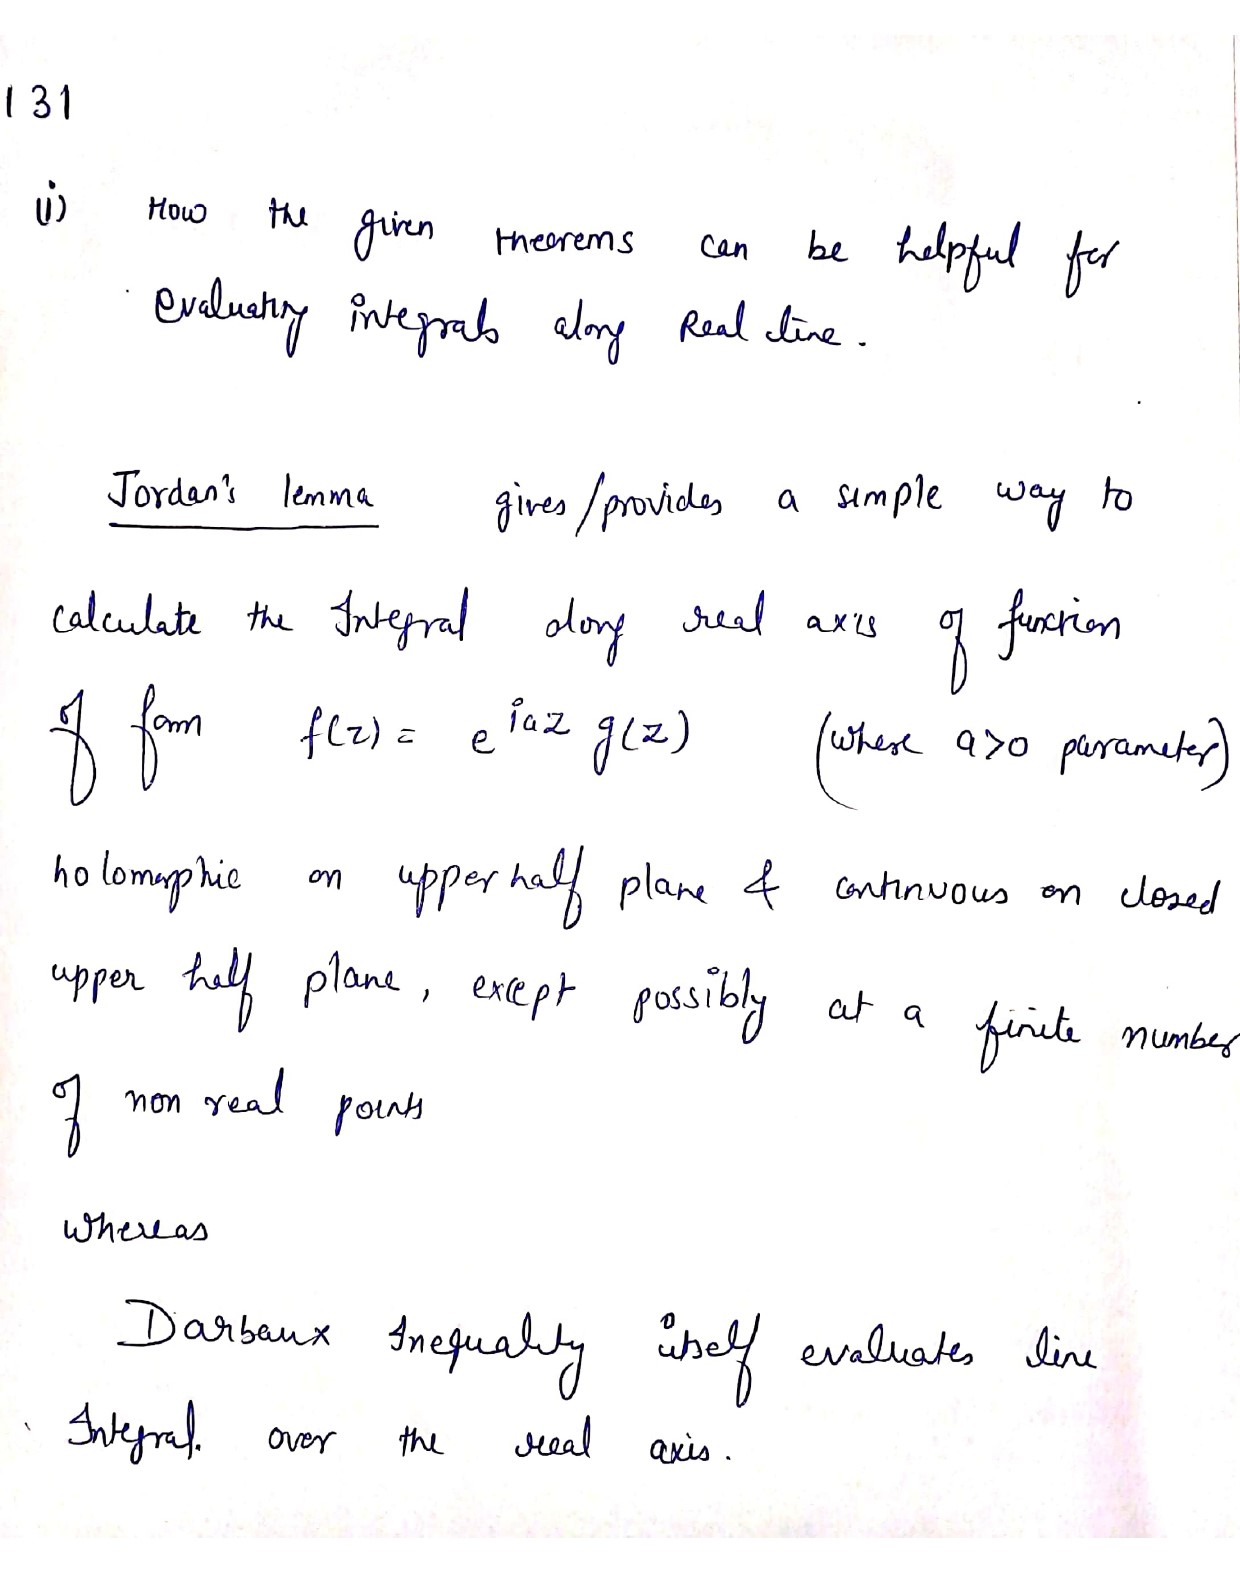 131
ii) How the given theorems can be helpful for
evaluating integrals along Real line.
Jordan's lemma gives/provides a simple way to
calculate the Integral along real axis of function
of form f(z) = e^{iaz} g(z) (where a>0 parameter)
holomorphic on upper half plane & continuous on closed
upper half plane, except possibly at a finite number
of non real points
whereas
Darbaux Inequality itself evaluates line
Integral. over the real axis.